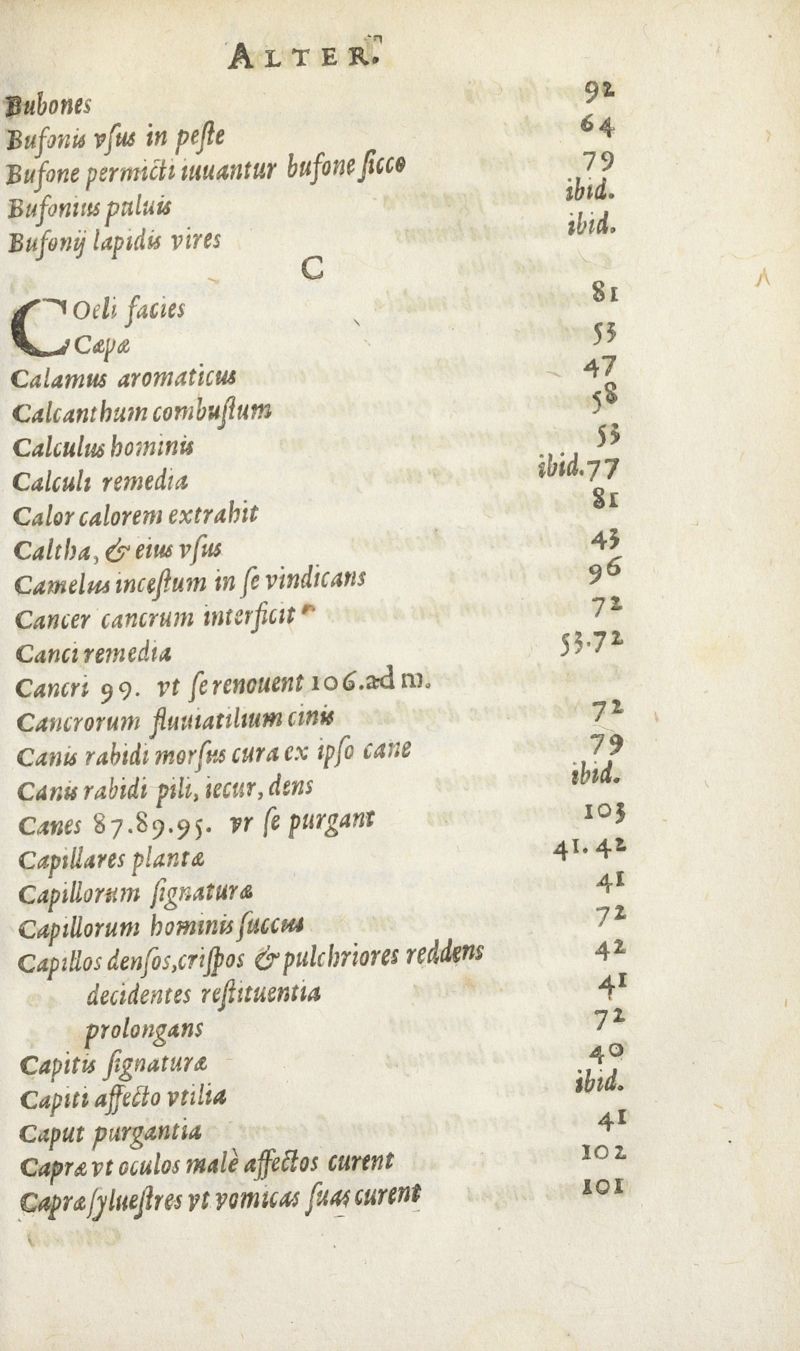 ALTER.
Bubones 92
Bufonis vſus in peſte 64
Bufone permicti iuuantur bufone ſicco 79
Bufonius puluis ibid.
Bufonij lapidis vires ibid.
C
COeli facies 81
Cæpæ 53
Calamus aromaticus 47
Calcanthum combuſtum 58
Calculus hominis 53
Calculi remedia ibid.77
Calor calorem extrahit 81
Caltha, & eius vſus 43
Camelus inceſtum in ſe vindicans 96
Cancer cancrum interficit 72
Cancri remedia 53.72
Cancri 99. vt ſe renouent 106.ad m.
Cancrorum fluuiatilium cinis 72
Canis rabidi morſus cura ex ipſo cane 79
Canis rabidi pili, iecur, dens ibid.
Canes 87.89.95. vr ſe purgant 103
Capillares plantæ 41.42
Capillorum ſignaturæ 41
Capillorum hominis ſuccus 72
Capillos denſos,criſpos & pulchriores reddens 42
decidentes reſtituentia 41
prolongans 72
Capitis ſignaturæ 40
Capiti affecto vtilia ibid.
Caput purgantia 41
Capræ vt oculos malè affectos curent 102
Capræ ſylueſtres vt vomicas ſuas curent 101